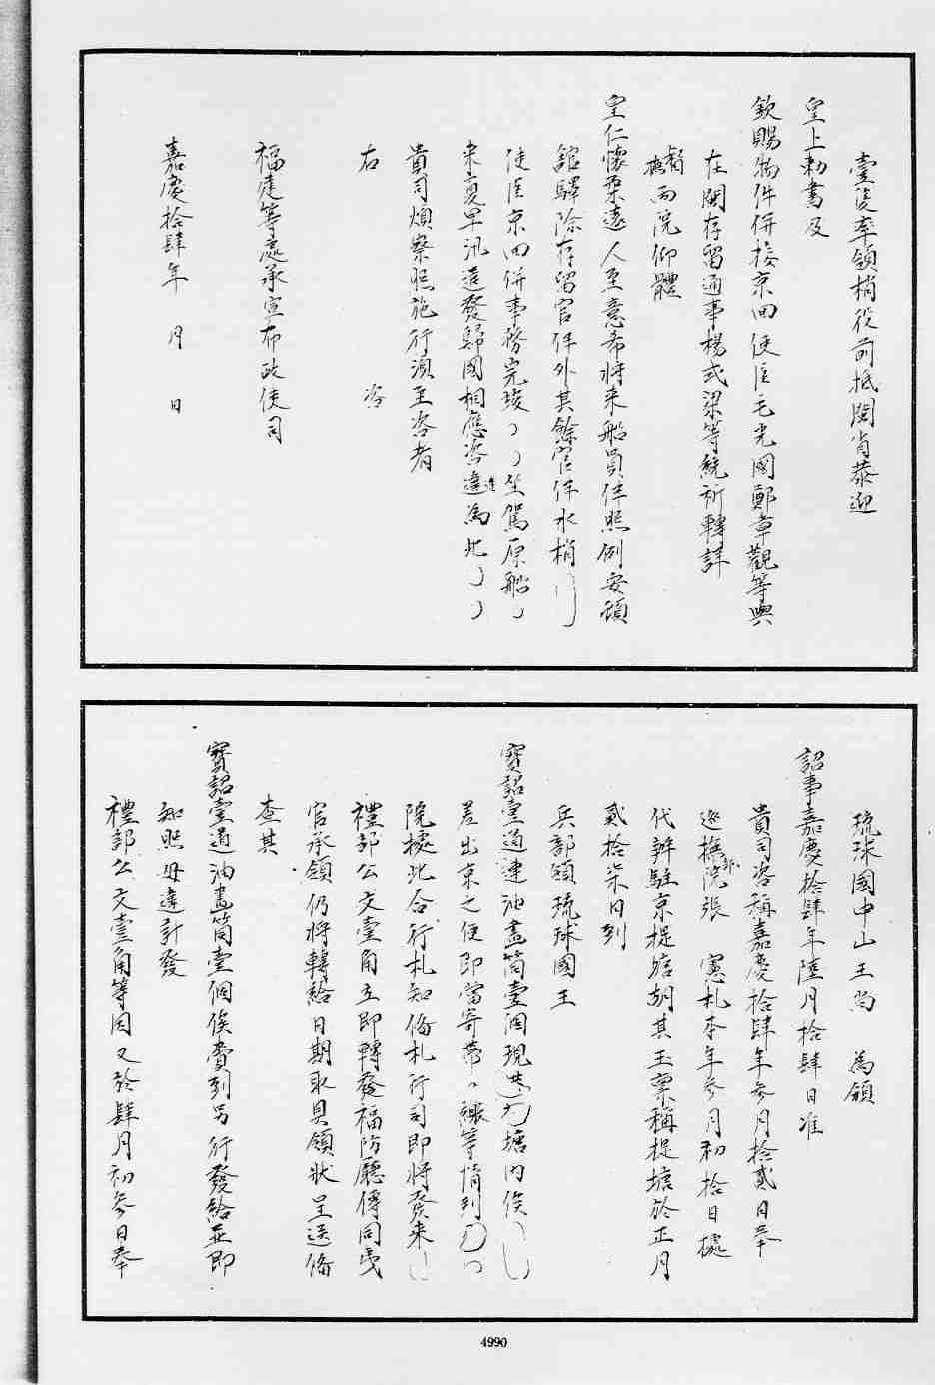 壹隻率領梢役前抵閩省恭迎
皇上勅書及
欽賜物件併接京回使臣毛光國鄭章觀等與
在閩存留通事楊式梁等統祈轉詳
督撫兩院仰體
皇仁懷柔遠人至意希將来船員伴照例安頓
舘驛除存留官伴外其餘官伴水梢
使臣京回併事務完竣坐駕原船
来夏早汛遣發歸國相應咨達為此
貴司煩察照施行須至咨者
右　咨
福建等處承宣布政使司
嘉慶拾肆年　月　日
琉球國中山王尚　為領
詔事嘉慶拾肆年陸月拾肆日准
貴司咨稱嘉慶拾肆年參月拾貳日奉
巡撫部院張　憲札本年參月初拾日據
代辦駐京提塘胡其玉稟稱提塘於正月
貳拾柒日到
兵部領琉球國王
寶詔壹道連油畫筒壹個現塘內俟
差出京之便即當寄帶緣等情到
院據此合行札知俻札行司即將發来
禮部公文壹角立即轉發福防廳傳同夷
官承領仍將轉給日期取具領狀呈送俻
查其
寶詔壹道油畫筒壹個俟賫到另行發給並即
知照毋違計發
禮部公文壹角等因又於肆月初參日奉
4990